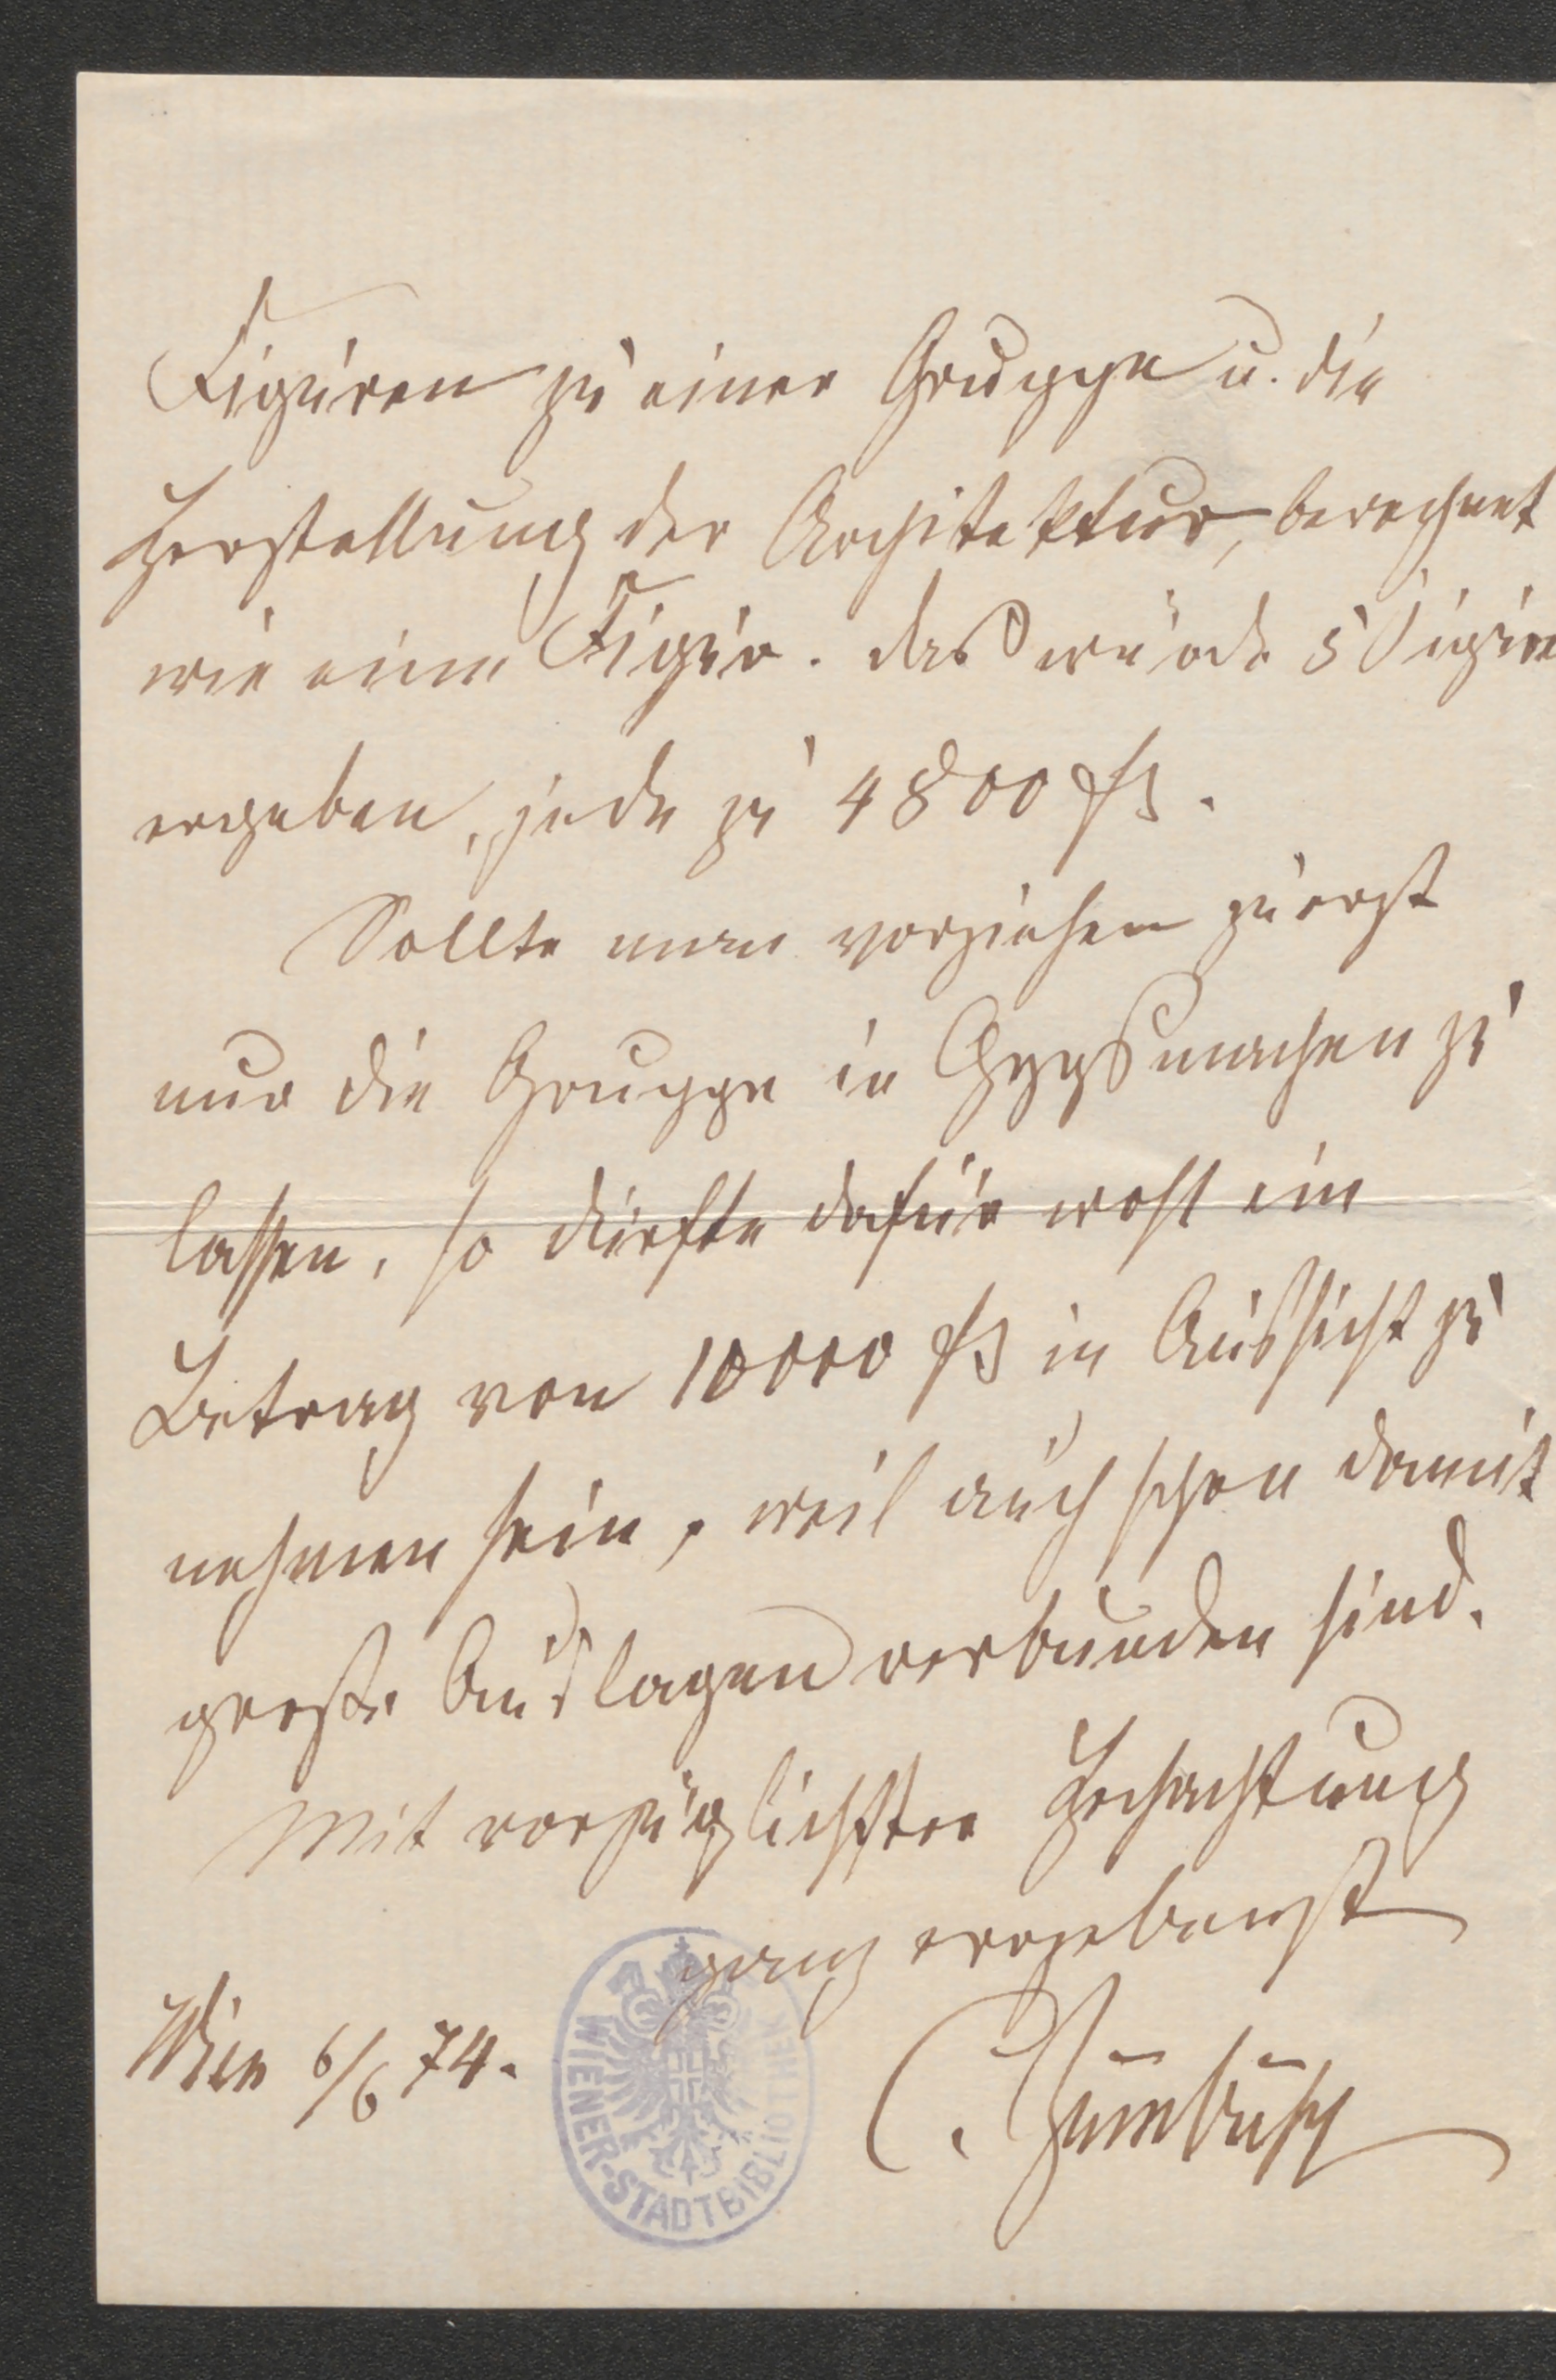 Figuren zu einer Gruppe u. die
Herstellung der Architektur, berechnet
wie eine Figur. das würde 5 Figuren
ergeben, jede zu 4800 fl.
Sollte man vorziehen zuerst
nur die Gruppe in Gyps machen zu
lassen, so dürfte dafür wohl ein
Betrag von 10000 fl in Aussicht zu
nehmen sein, weil auch schon damit
große Auslagen verbunden sind.
Mit vorzüglichster Hochachtung
ganz ergebenst
Wien 6/6 74.
C. Zumbusch
WIENER-STADTBIBLIOTHEK